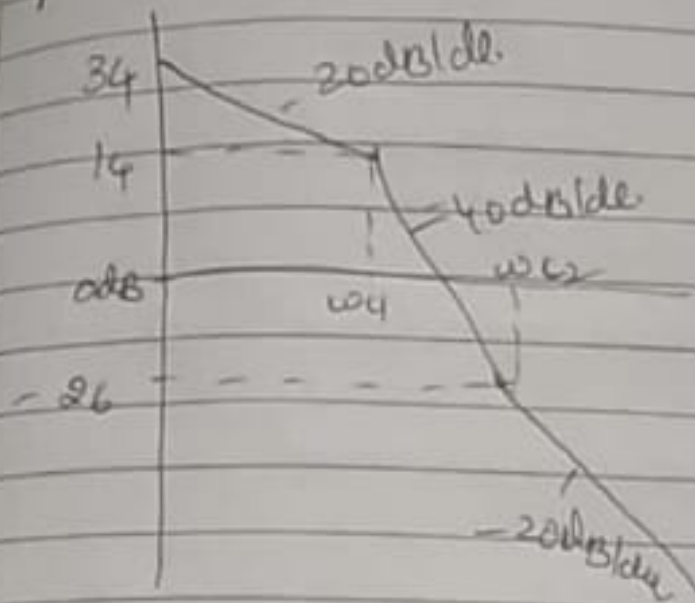 34
20dB/de.
14
-40dB/de
0dB
ωc1
ωc2
-26
-20dB/de